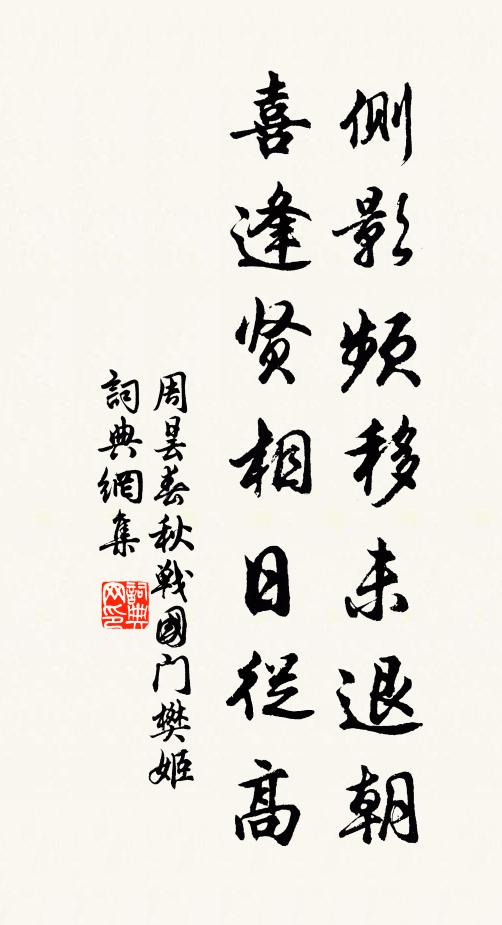 側影频移未退朝
喜逢贤相日從高
周昙春秋戦國门樊姬
詞典網集
詞典网印